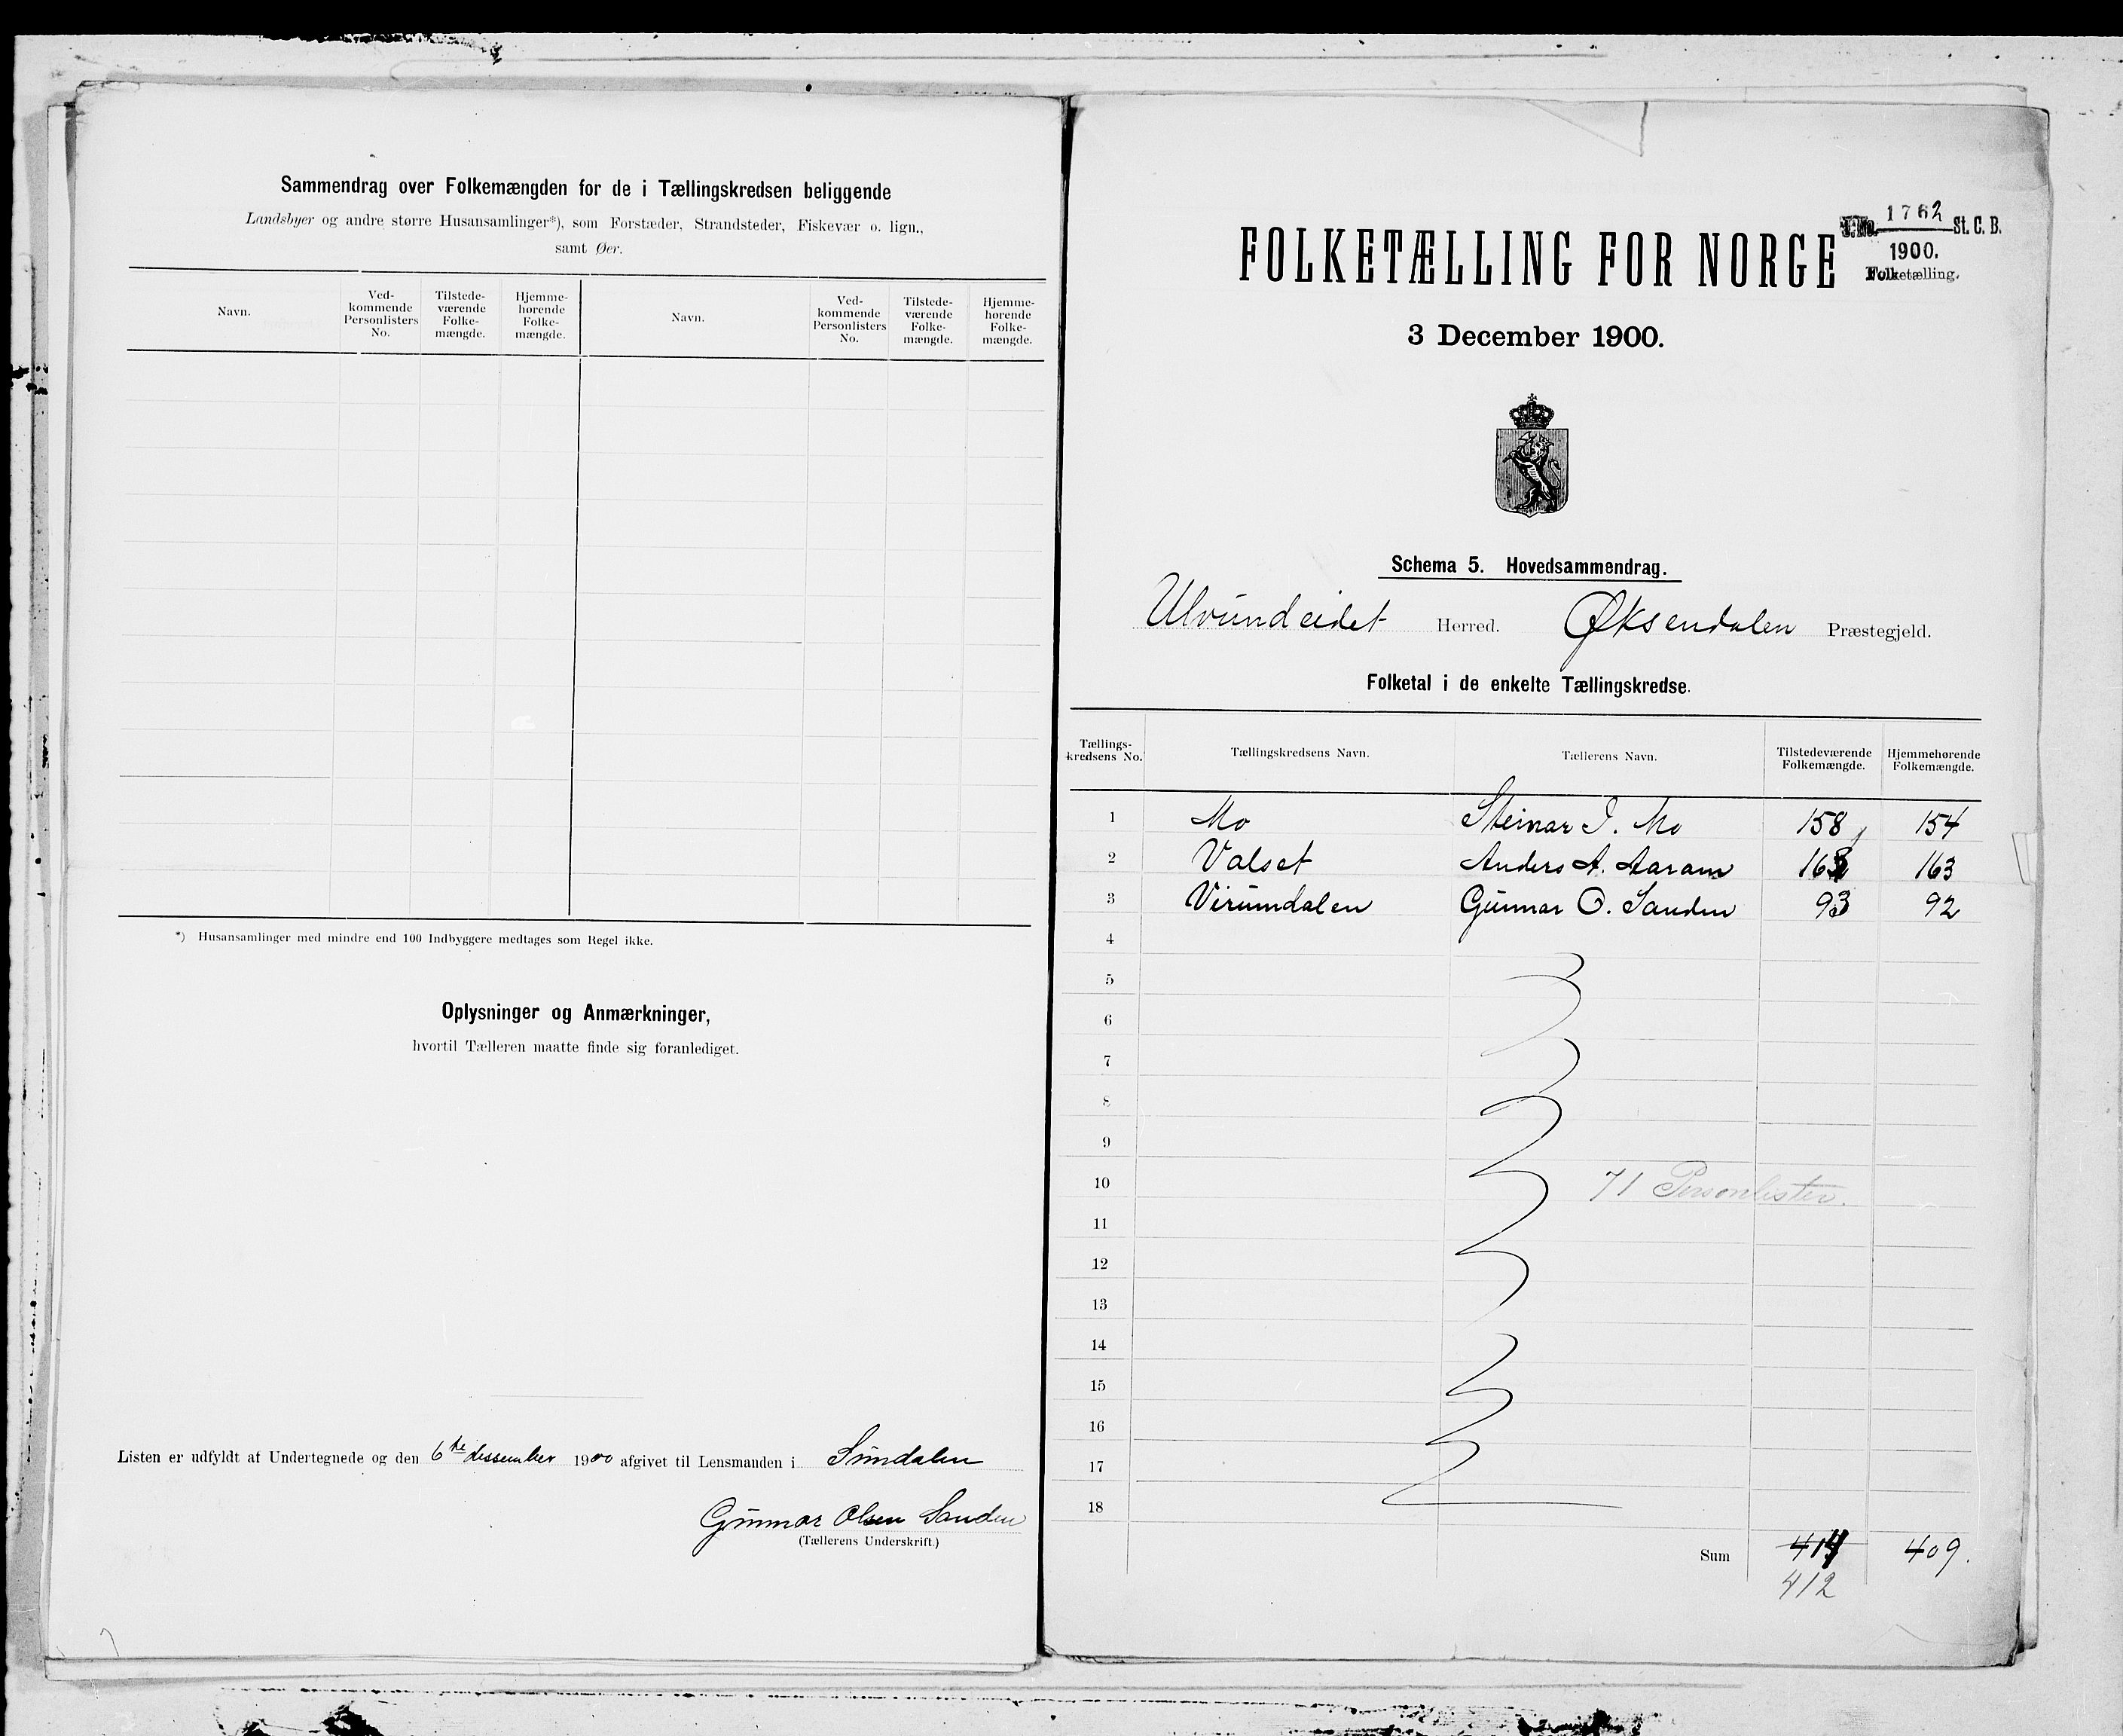 Sammendrag over Folkemængden for de i Tællingskredsen beliggende
Landsbyer og andre større Husansamlinger*), som Forstæder, Strandsteder, Fiskevær o. lign.,
samt Øer.
Navn. Ved-kommende Personlisters No. Tilstede-værende Folke-mængde. Hjemme-hørende Folke-mængde. Navn. Ved-kommende Personlisters No. Tilstede-værende Folke-mængde. Hjemme-hørende Folke-mængde.
*) Husansamlinger med mindre end 100 Indbyggere medtages som Regel ikke.
Oplysninger og Anmærkninger,
hvortil Tælleren maatte finde sig foranlediget.
Listen er udfyldt af Undertegnede og den 6te dessember 1900 afgivet til Lensmanden i Sundalen
Gunnar Olsen Sanden
(Tællerens Underskrift.)
FOLKETÆLLING FOR NORGE
1762 St. C. B.
1900.
Folketælling.
3 December 1900.
Schema 5. Hovedsammendrag.
Ulvundeidet Herred. Øksendalen Præstegjeld.
Folketal i de enkelte Tællingskredse.
Tællings-kredsens No. Tællingskredsens Navn. Tællerens Navn. Tilstedeværende Folkemængde. Hjemmehørende Folkemængde.
1 Mo Steinar I. Mo 158 154
2 Valset Anders A. Aaram 163
3 Virumdalen Gunnar O. Sanden 93 92
4
5
6
7
8
9
10 71 Personlister.
11
12
13
14
15
16
17
18
Sum 414 409.
412